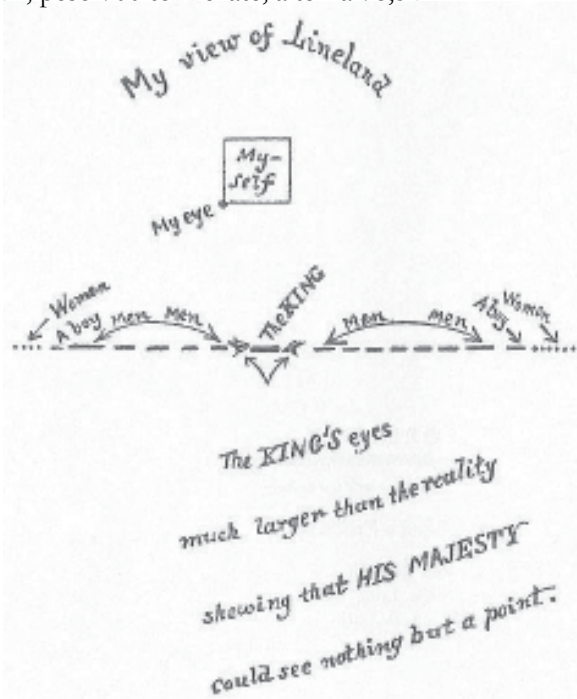 My view of Lineland
My-
self
My eye
Women
A boy
Men
men
The KING
Men
men
A boy
Women
The KING'S eyes
much larger than the reality
shewing that HIS MAJESTY
could see nothing but a point.